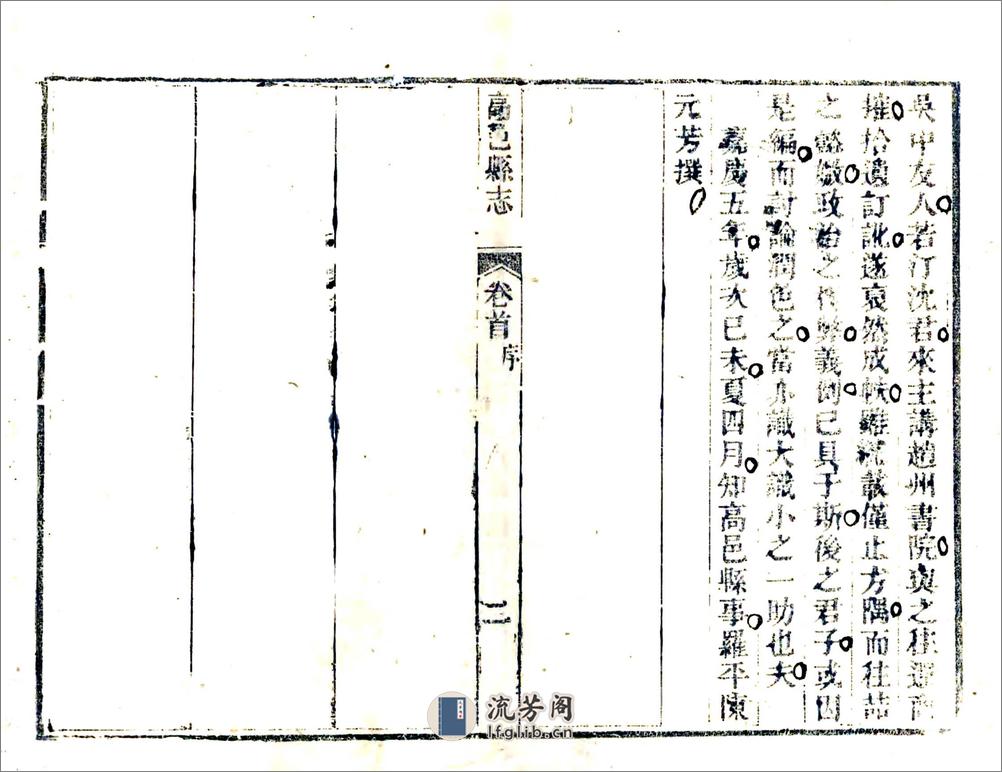 吳中友人若汀沈君來主講趙州書院與之往還商
搉拾遺訂訛遂裒然成帙雖載僅止方隅而往喆
之懿媺政治之義例已具于斯後之君子或因
是編而討論潤色之當亦識大識小之一助也夫
嘉慶五年歲次己未夏四月知高邑縣事羅平陳
元芳撰
高邑縣志
卷首
序
二
流芳阁
lfglib.cn